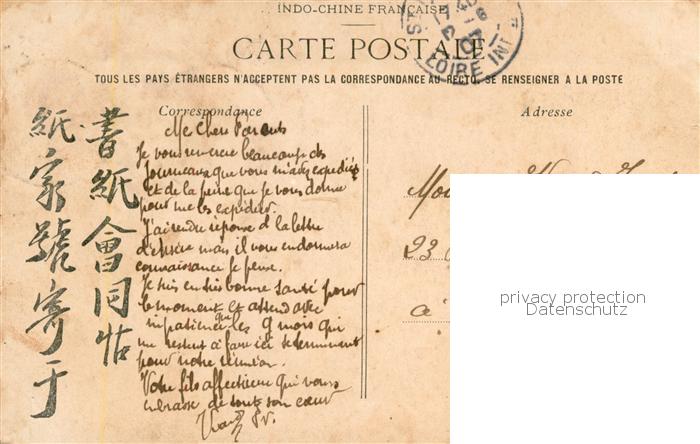 INDO-CHINE FRANÇAISE
CARTE POSTALE
TOUS LES PAYS ÉTRANGERS N'ACCEPTENT PAS LA CORRESPONDANCE AU RECTO. SE RENSEIGNER A LA POSTE
Correspondance
Mes Chers Parents
Je vous remercie beaucoup des
journeaux que vous m'avez expediés
et de la peine que je vous donne
pour me les expédier.
J'ai rendu réponse a la lettre
mais il vous en donnera
connaissance je pense.
Je suis en très bonne santé pour
le moment et attend avec
impatience que les 9 mois qui
me restent a faire ici se terminent
pour notre réunion.
Votre fils affectueux qui vous
embrasse de tout son cœur
書紙會同
紙家號寄于
Adresse
23
à
LOIRE INF
privacy protection
Datenschutz